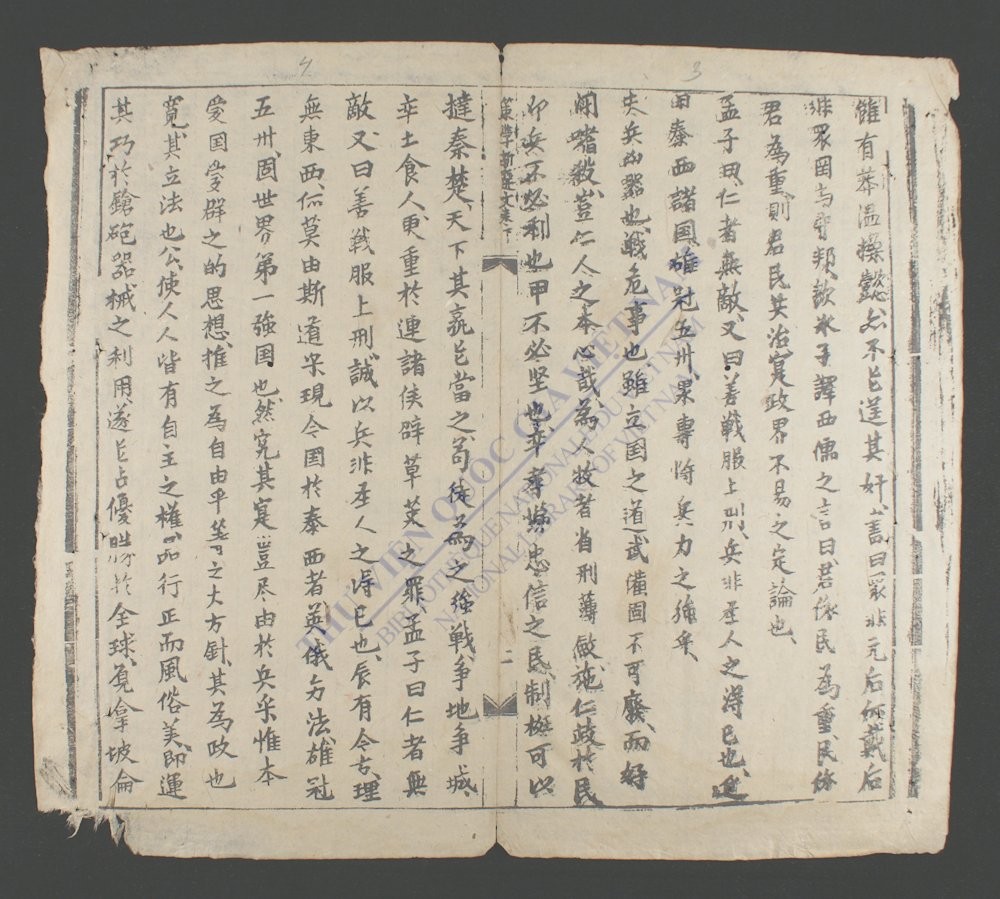 3
雖有莽溫操懿亦不乞逞其奸書曰眾非元后何戴后
非眾罔与守邦欽哉子譯西儒之言曰君係民為重民係
君為重則君民共治寔政界不易之定論也
孟子曰仁者無敵又曰善戰服上刑兵非圣人之得已也迨
由泰西諸国雄冠五卅果專恃兵力之強乎
夫兵凶器也戦危事也雖立国之道武備固不可廢而好
鬪嗜殺豈仁人之本心哉為人牧者省刑薄斂施仁政於民
即兵不必利也甲不必坚也率孝悌忠信之民制梃可以
策學新選文集下
二
4
撻秦楚天下其孰乞當之苟徒為之強戦爭地爭城
率土食人更重於連諸侯辟草萊之罪孟子曰仁者無
敵又曰善戦服上刑誠以兵非圣人之淂已也辰有今古理
無東西仁莫由斯道乎現今国於泰西者英俄方法雄冠
五卅固世界第一強国也然究其寔豈尽由於兵乎惟本
爱国爱群之的思想推之為自由平等之大方針其為政也
寬其立法也公使人人皆有自主之權品行正而風俗美即運
其巧於鎗砲器械之利用遂乞占優勝於全球覓拿坡侖
THƯ VIỆN QUỐC GIA VIỆT NAM
BIBLIOTHEQUE NATIONALE DU VIETNAM
NATIONAL LIBRARY OF VIETNAM